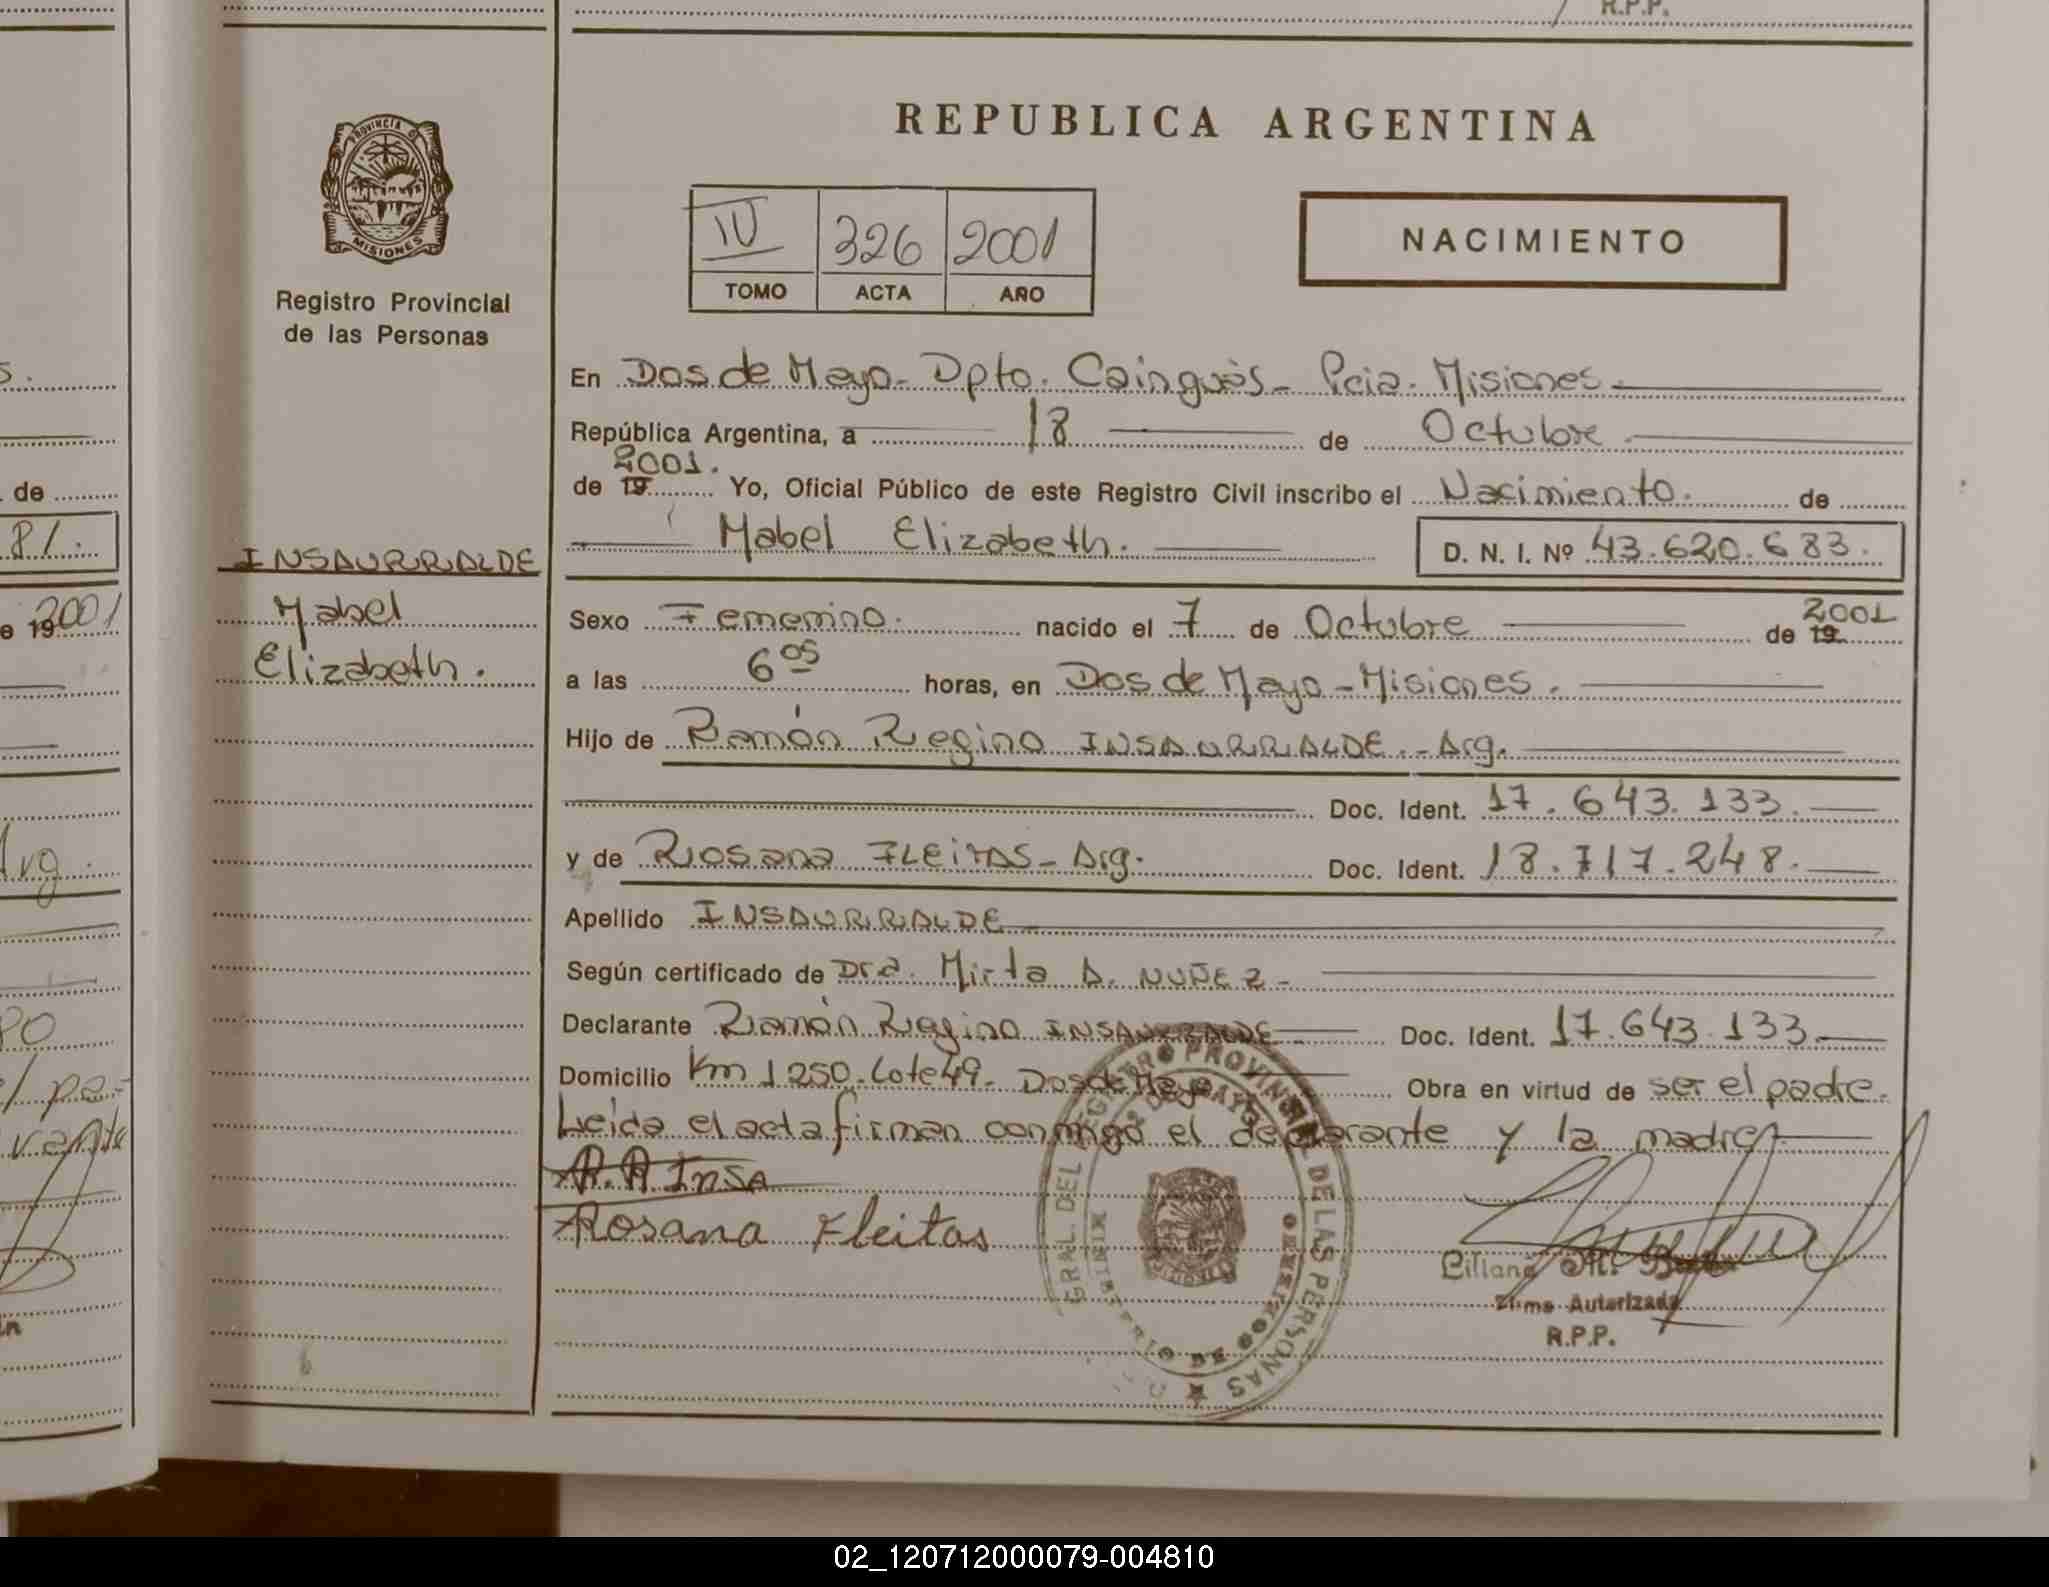 R.P.P.
REPUBLICA ARGENTINA
PROVINCIA D
MISIONES
Registro Provincial
de las Personas
IV 326 2001
TOMO ACTA AÑO
NACIMIENTO
En Dos de Mayo - Dpto. Cainguás - Pcia. Misiones.
República Argentina, a 18 de Octubre
de 19 2001. Yo, Oficial Público de este Registro Civil inscribo el Nacimiento. de
Mabel Elizabeth. D. N. I. Nº 43.620.683.
INSAURRALDE
Mabel
Elizabeth.
Sexo Femenino. nacido el 7 de Octubre de 19 2001
a las 6 05 horas, en Dos de Mayo - Misiones.
Hijo de Ramón Regino INSAURRALDE. - Arg.
Doc. Ident. 17.643.133.
y de Rosana FLEITAS - Arg. Doc. Ident. 18.717.248.
Apellido INSAURRALDE
Según certificado de Dra. Mirta A. NUÑEZ -
Declarante Ramón Regino INSAURRALDE - Doc. Ident. 17.643.133
Domicilio Km 1250. Lote 49. Dos de Mayo Obra en virtud de ser el padre.
Leida el acta firman conmigo el declarante y la madre
R.R Insa
Rosana Fleitas
GRAL. DEL REGISTRO PROVINCIAL DE LAS PERSONAS
2 DE MAYO
MINISTERIO DE GOBIERNO
Liliana M.
Firma Autorizada
R.P.P.
s.
de
81.
e 19 2001
Arg.
PO
02_120712000079-004810